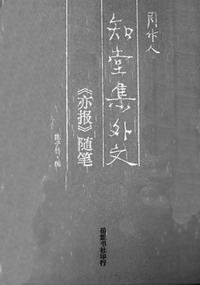 周作人
知堂集外文
《亦报》随笔
陈子善·编
岳麓书社印行